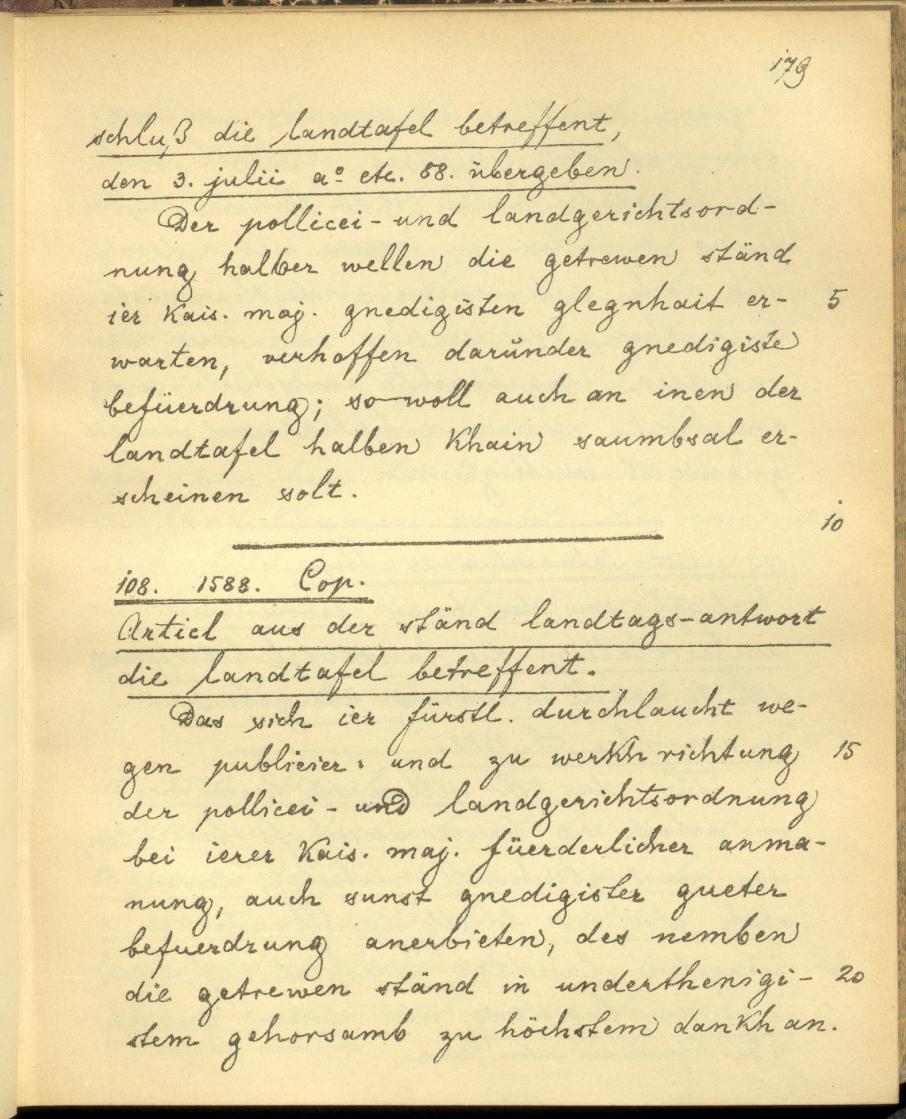 179
schluß die landtafel betreffent,
den 3. julii aº etc. 88. übergeben.
Der pollicei- und landgerichtsord-
nung halber wellen die getrewen ständ
ier kais. maj. gnedigisten glegnhait er- 5
warten, verhoffen darŭnder gnedigiste
befüerdrung; so woll auch an inen der
landtafel halben khain saumbsal er-
scheinen solt.
10
108. 1588. Cop.
Articl aus der ständ landtags-antwort
die landtafel betreffent.
Das sich ier fürstl. durchlaucht we-
gen publicier. und zu werkh richtung 15
der pollicei- und landgerichtsordnung
bei ierer kais. maj. füerderlicher anma-
nung, auch sunst gnedigister gueter
befuerdrung anerbieten, des nemben
die getrewen ständ in underthenigi- 20
stem gehorsamb zu höchstem dankh an.